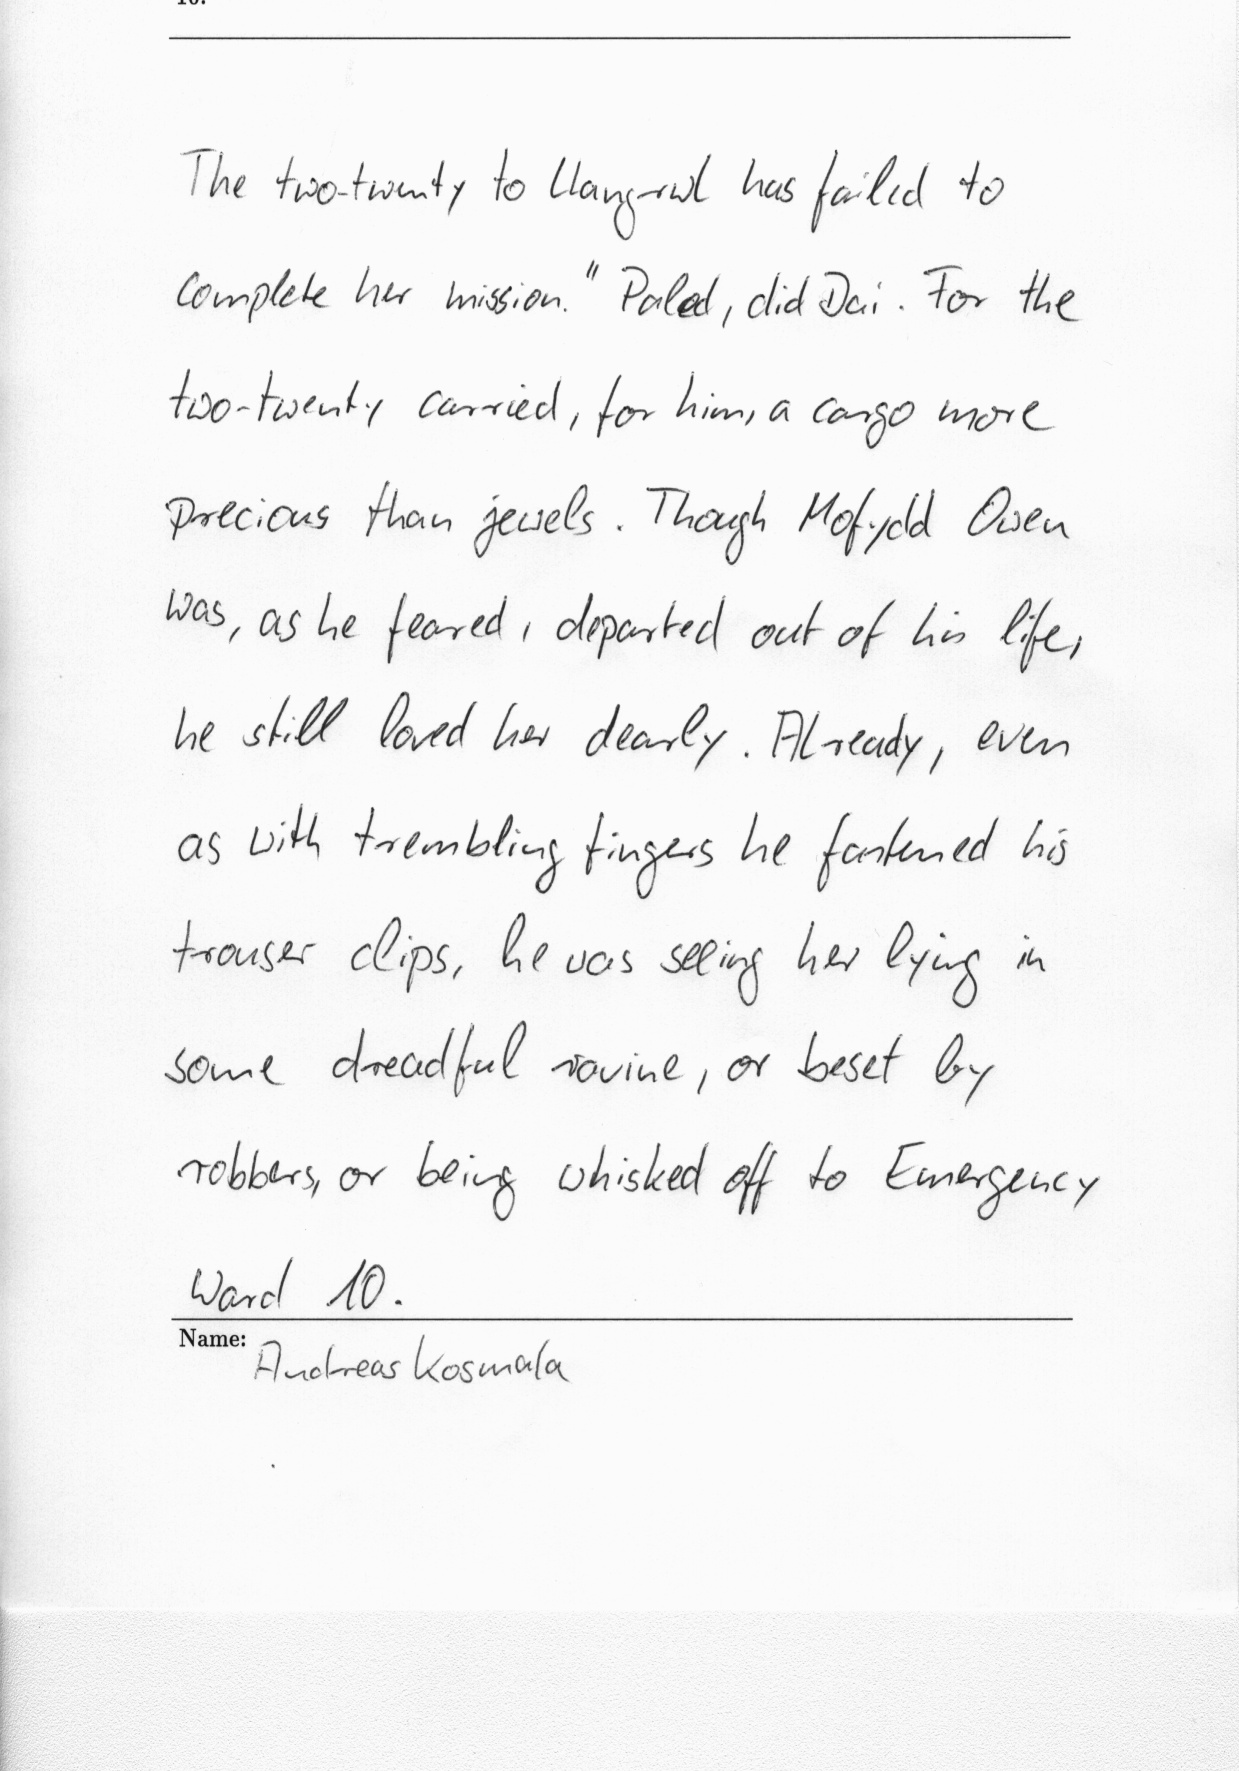 10.
The two-twenty to Llangrwl has failed to
complete her mission." Paled, did Dai. For the
two-twenty carried, for him, a cargo more
precious than jewels. Though Mofydd Owen
was, as he feared, departed out of his life,
he still loved her dearly. Already, even
as with trembling fingers he fastened his
trouser clips, he was seeing her lying in
some dreadful ravine, or beset by
robbers, or being whisked off to Emergency
Ward 10.
Name: Andreas Kosmala